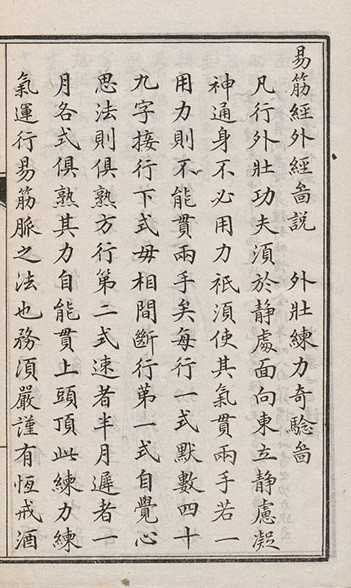 易筋經外經啚説　外壯練力奇騐啚
凡行外壯功夫湏於静處面向東立静慮凝
神通身不必用力衹湏使其氣貫兩手若一
用力則不能貫兩手矣每行一式默數四十
九字接行下式毋相間斷行第一式自覺心
思法則俱熟方行第二式速者半月遲者一
月各式俱熟其力自能貫上頭頂此練力練
氣運行易筋脈之法也務湏嚴謹有恆戒酒